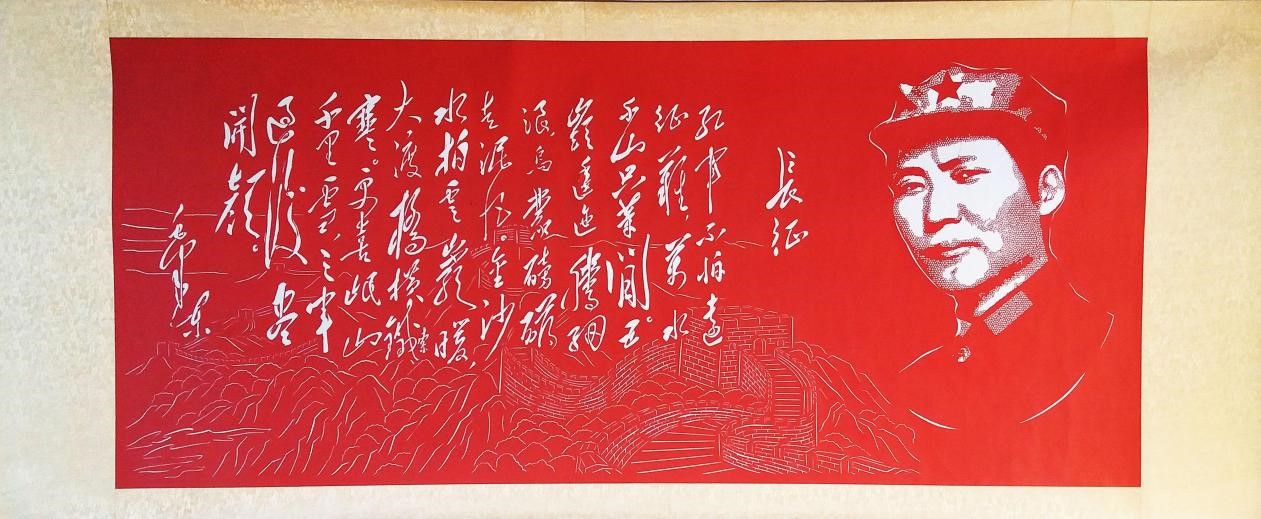 長征
紅軍不怕遠
征難，萬水
千山只等閒。五
嶺逶迤騰細
浪，烏蒙磅礴
走泥丸。金沙
水拍雲巖暖，
大渡橋橫鐵索
寒。更喜岷山
千里雪，三軍
過後盡
開顏。
毛澤東